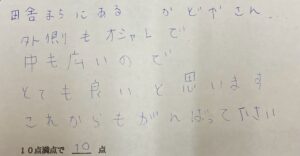 田舎まちにある かどやさん..
外側もオシャレで
中も広いので
とても良いと思います
これからもがんばって下さい
10点満点で 10 点